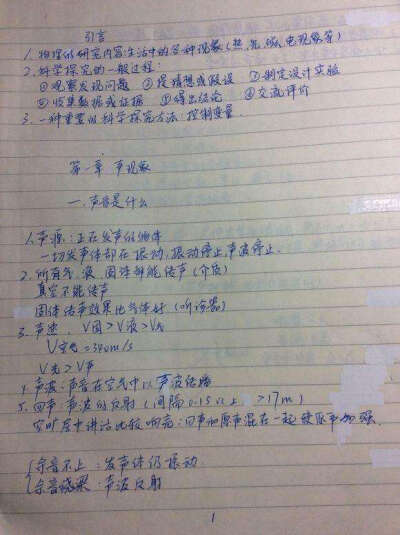 引言
1. 物理的研究内容:生活中的各种现象(热、光、磁、电现象等)
2. 科学探究的一般过程:
① 观察发现问题 ② 提猜想或假设 ③ 制定设计实验
④ 收集数据或证据 ⑤ 得出结论 ⑥ 交流评价
3. 一种重要的科学探究方法:控制变量.
第一章 声现象
一. 声音是什么
1. 声源:正在发声的物体
一切发声体都在振动,振动停止,声波停止.
2. 所有气、液、固体都能传声(介质)
真空不能传声
固体传声效果比气体好(听诊器)
3. 声速. V固>V液>V气
V空气=340m/s
V光>V声
4. 声波:声音在空气中以声波传播
5. 回声:声波的反射(间隔0.1s以上 >17m)
空旷房中讲话比较响亮:回声和原声混在一起使原声加强.
余音不止:发声体仍振动.
余音绕梁:声波反射
1